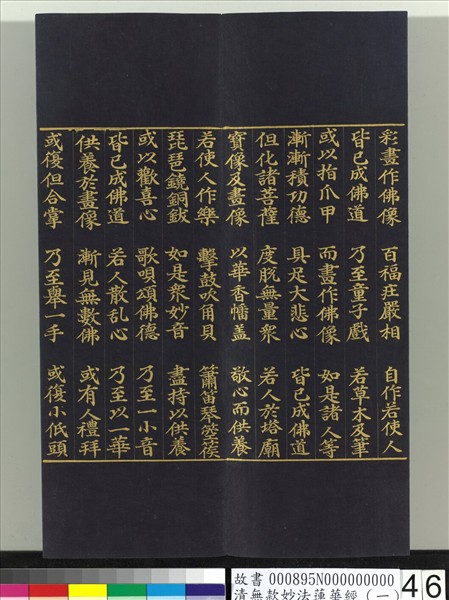 彩畫作佛像 百福莊嚴相 自作若使人
皆已成佛道 乃至童子戲 若草木及筆
或以指爪甲 而畫作佛像 如是諸人等
漸漸積功德 具足大悲心 皆已成佛道
但化諸菩薩 度脫無量衆 若人於塔廟
寶像及畫像 以華香幡蓋 敬心而供養
若使人作樂 擊鼓吹角貝 簫笛琴箜篌
琵琶鐃銅鈸 如是衆妙音 盡持以供養
或以歡喜心 歌唄頌佛德 乃至一小音
皆已成佛道 若人散乱心 乃至以一華
供養於畫像 漸見無數佛 或有人禮拜
或復但合掌 乃至舉一手 或復小低頭
故書 000895N000000000
清無款妙法蓮華經（一）
46